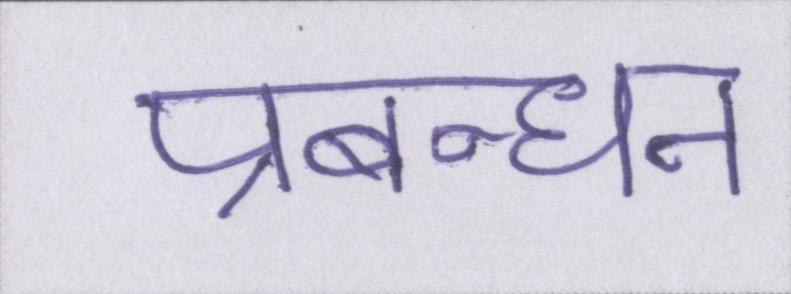 प्रबन्धन